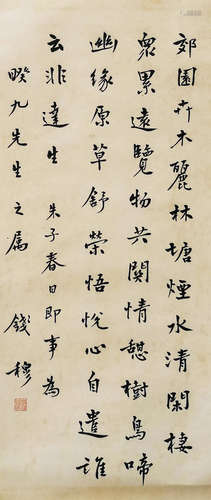 郊園卉木麗林塘煙水清閑棲
眾累遠覽物共關情憇樹鳥啼
幽緣原草舒榮悟悅心自遣誰
云非達生 朱子春日即事為
暌九先生之屬 錢穆